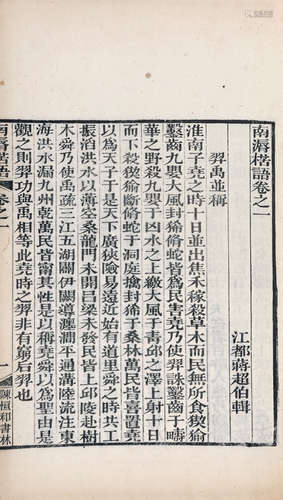 南漘楛語卷之一
江都蔣超伯輯
羿禹並稱
淮南子堯之時十日並出焦禾稼殺草木而民無所食猰㺄
鑿齒九嬰大風封豨脩蛇皆爲民害堯乃使羿誅鑿齒于疇
華之野殺九嬰于凶水之上繳大風于青邱之澤上射十日
而下殺猰㺄斷脩蛇于洞庭擒封豨于桑林萬民皆喜置堯
以爲天子于是天下廣狹險易遠近始有道里舜之時共工
振滔洪水以薄空桑龍門未開呂梁未發民皆上邱陵赴樹
木舜乃使禹疏三江五湖闢伊闕導瀍澗平通溝陸流注東
海洪水漏九州乾萬民皆甯其性是以稱堯舜以爲聖由是
觀之則羿功與禹相等此堯時之羿非有窮后羿也
南漘楛語 卷之一 一 陳恒和書林